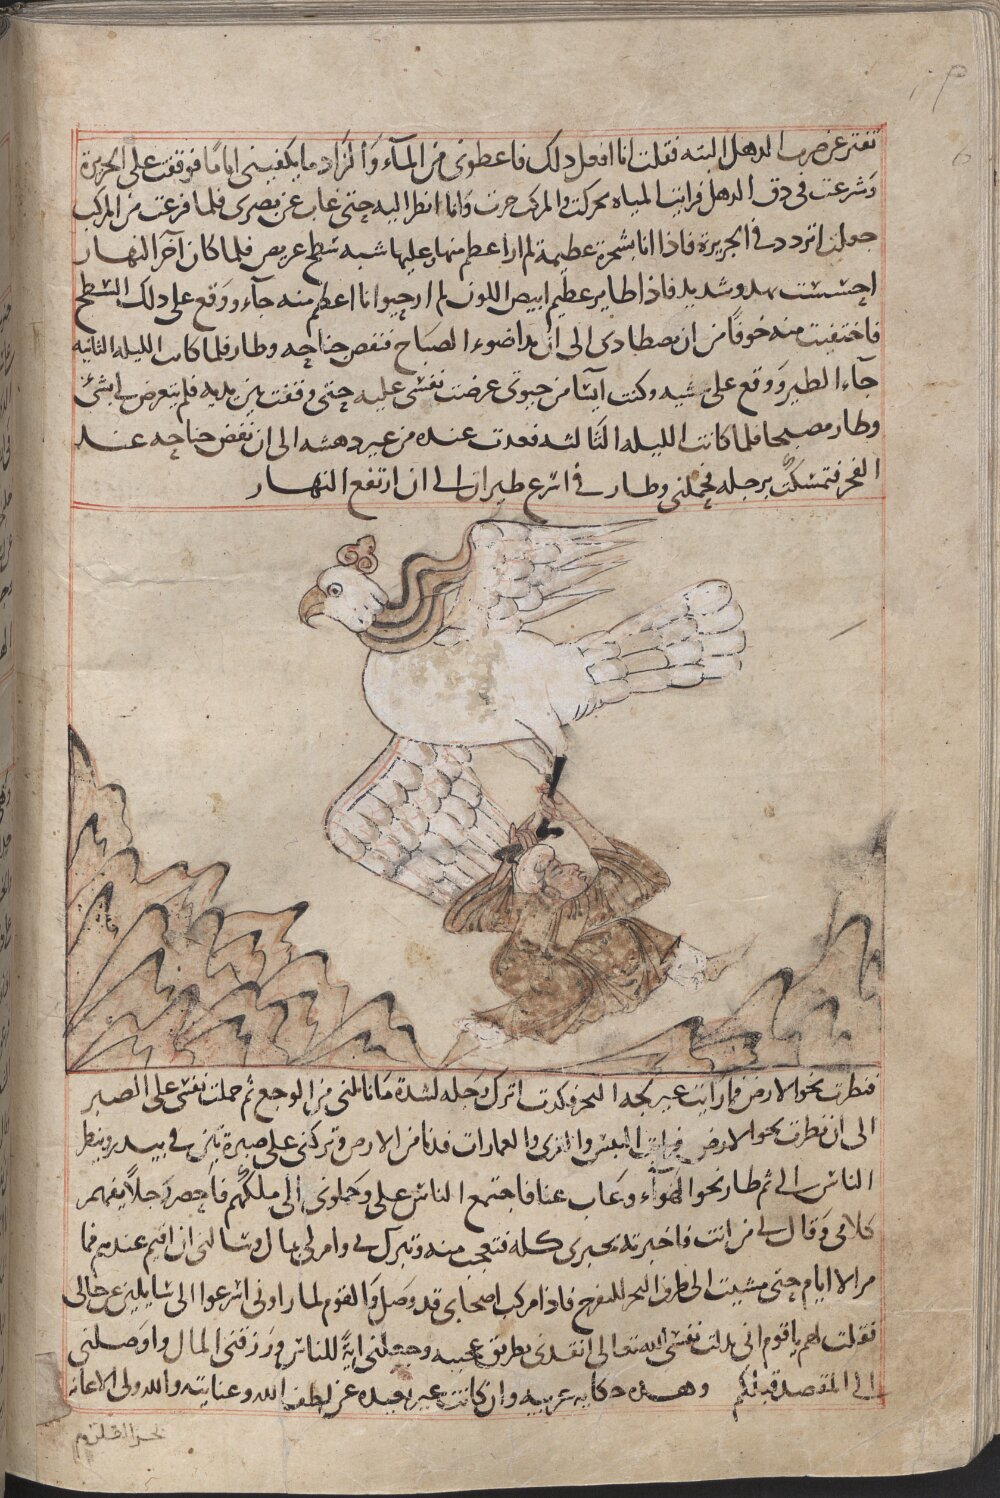 تفتر عن ضرب الدهل البته فقلت انا افعل ذلك فاعطونى من المآء والزاد ما يكفينى اياما فوقفت على الجزيرة
وشرعت فى دق الدهل فرايت المياه تحركت والمركب جرت وانا انظر اليه حتى غاب عن بصرى فلما فرغت من المركب
جعلت اتردد فى الجزيرة فاذا انا بشجرة عظيمة لم ار اعظم منها وعليها شبه سطح عريض فلما كان آخر النهار
احسست بهد وشديد فاذا طاير عظيم ابيض اللون لم ار حيوانا اعظم منه جآء ووقع على ذلك السطح
فاختفيت منه خوفا من ان يصطادى الى ان بدا ضوء الصباح فنفض جناحه وطار فلما كانت الليله الثانيه
جآء الطير ووقع على عشيه وكنت آيسا من حيوتى عرضت نفسى عليه حتى وقفت بين يديه فلم يتعرض لى بشئ
وطار مصبحا فلما كانت الليله الثالثه قعدت عنده من غير دهشه الى ان نفض جناحه عند
الفجر فتمسكت برجله فحملنى وطار فى اسرع طيران الى ان ارتفع النهار
فنظرت نحو الارض فما رايت غير لجه البحر فكدت اترك رجله لشدة ما نالنى من الوجع ثم حملت نفسى على الصبر
الى ان نظرت نحو الارض فرايت القرى والعمارات فدنا من الارض وتركنى على صبرة تبن فى بيدر وينظر
الناس الى ثم طار نحو الهوآء وغاب عنا فاجتمع الناس على وحملونى الى ملكهم فاحضر رجلا يفهم
كلامى وقال لى من انت فاخبرته بخبرى كله فتعجب منه وتبرك بى وامر لى بمال وسالنى ان اقيم عندهم فما
مر الا ايام حتى مشيت الى طرف البحر للتفرج فاذا مركب اصحابى قد وصل والقوم لما راونى اسرعوا الى سايلين عن حالى
فقلت لهم يا قوم انى بذلت نفسى لله تعالى انقذنى بطريق عجيبه وجعلنى اية للناس ورزقنى المال واوصلنى
الى المقصد قبلكم وهذه حكايه غريبه وان كانت غير بعيده عن لطف الله وعنايته والله ولى الاعانه
بحر القلزم